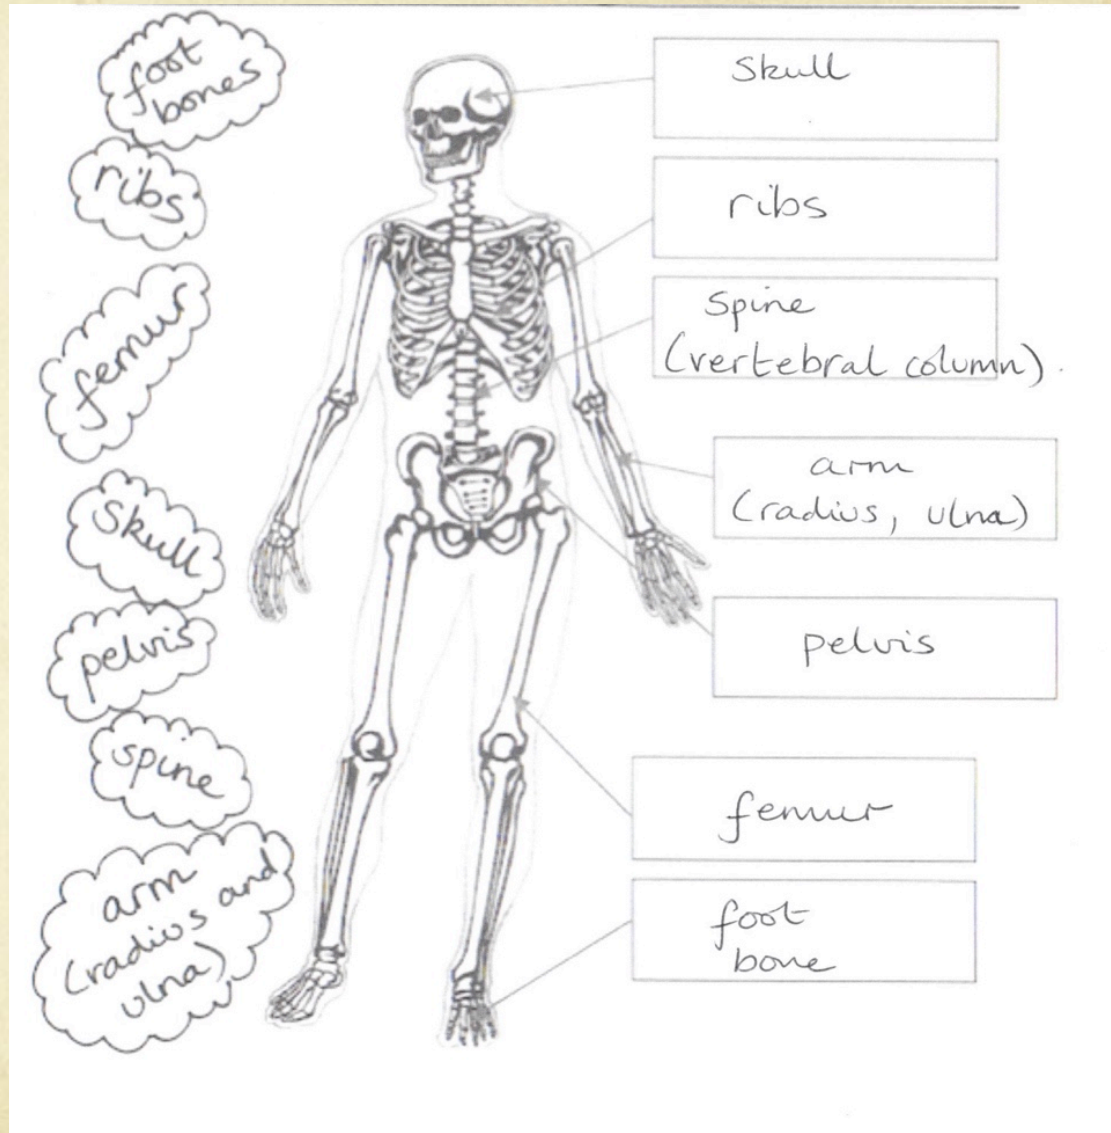 foot
bones
ribs
femur
skull
pelvis
spine
arm
(radius and
ulna)
Skull
ribs
Spine
(vertebral column).
arm
(radius, ulna)
pelvis
femur
foot
bone